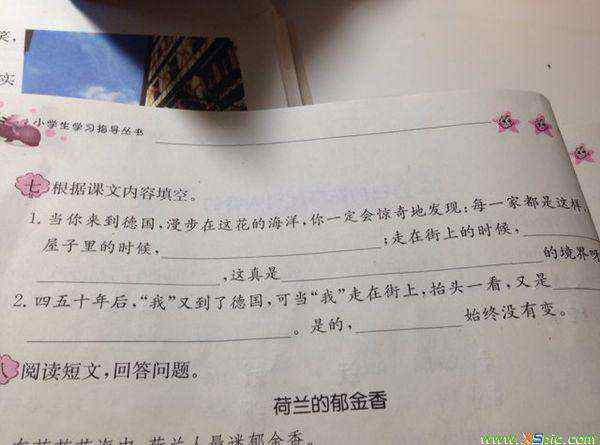 笑，
实
小学生学习指导丛书
七 根据课文内容填空。
1. 当你来到德国，漫步在这花的海洋，你一定会惊奇地发现：每一家都是这样，
屋子里的时候，；走在街上的时候，
，这真是的境界呀
2. 四五十年后，“我”又到了德国，可当“我”走在街上，抬头一看，又是
。是的，始终没有变。
八 阅读短文，回答问题。
荷兰的郁金香
荷兰人最迷郁金香。
www.XSpic.com